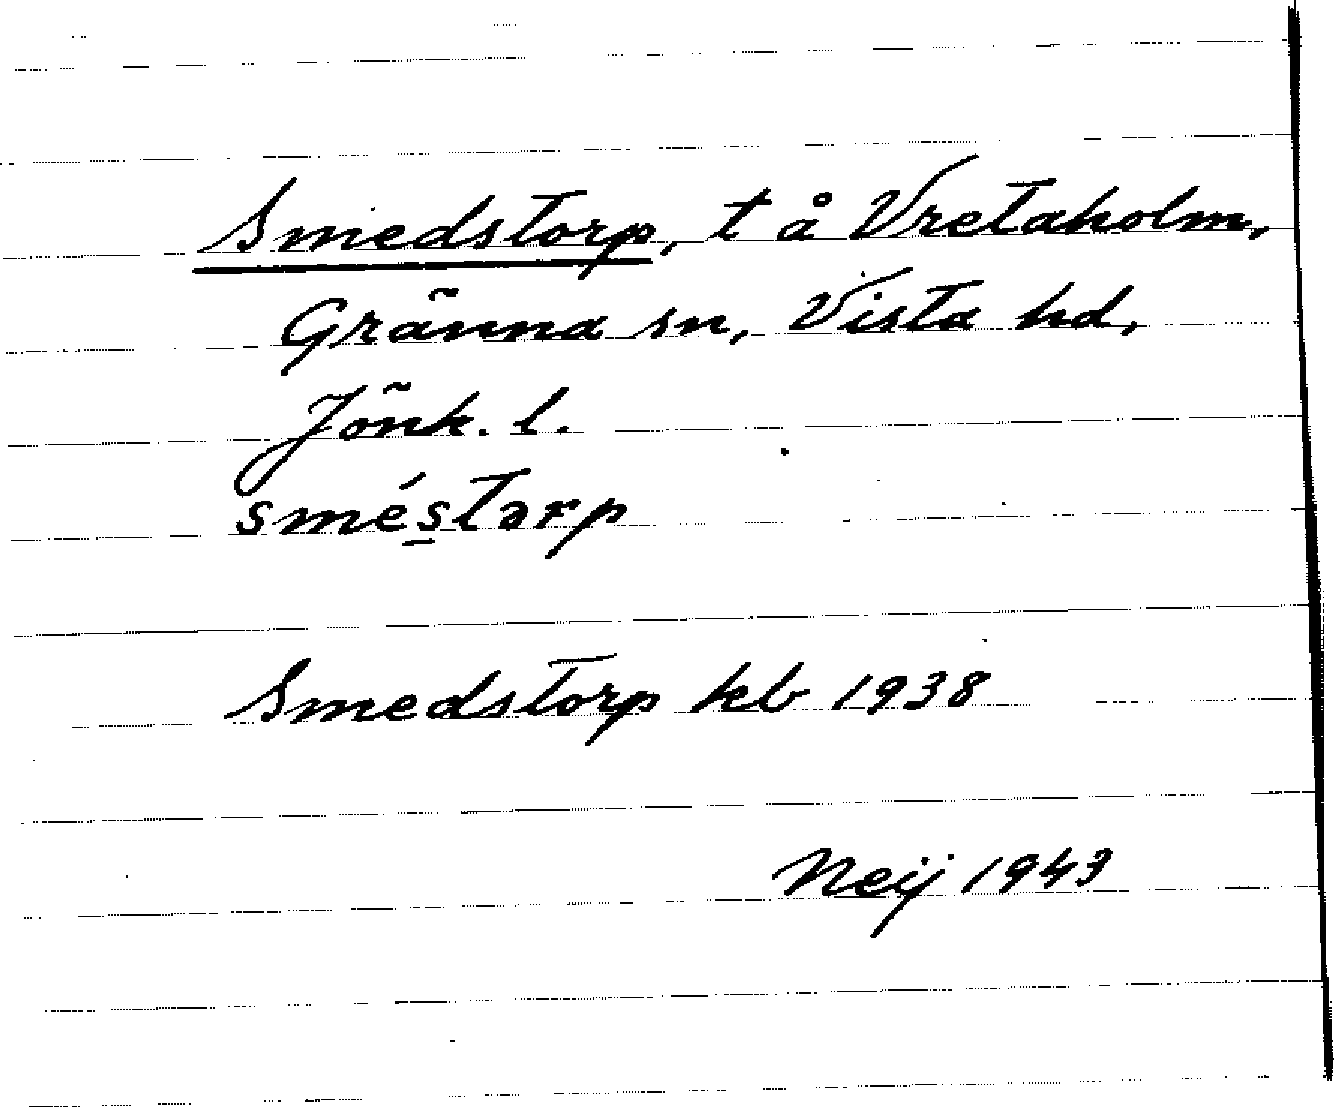 Smedstorp, t å Vretaholm,
Gränna sn, Vista hd,
Jönk. l.
smés̱tərp
Smedstorp kb 1938
Neij 1943